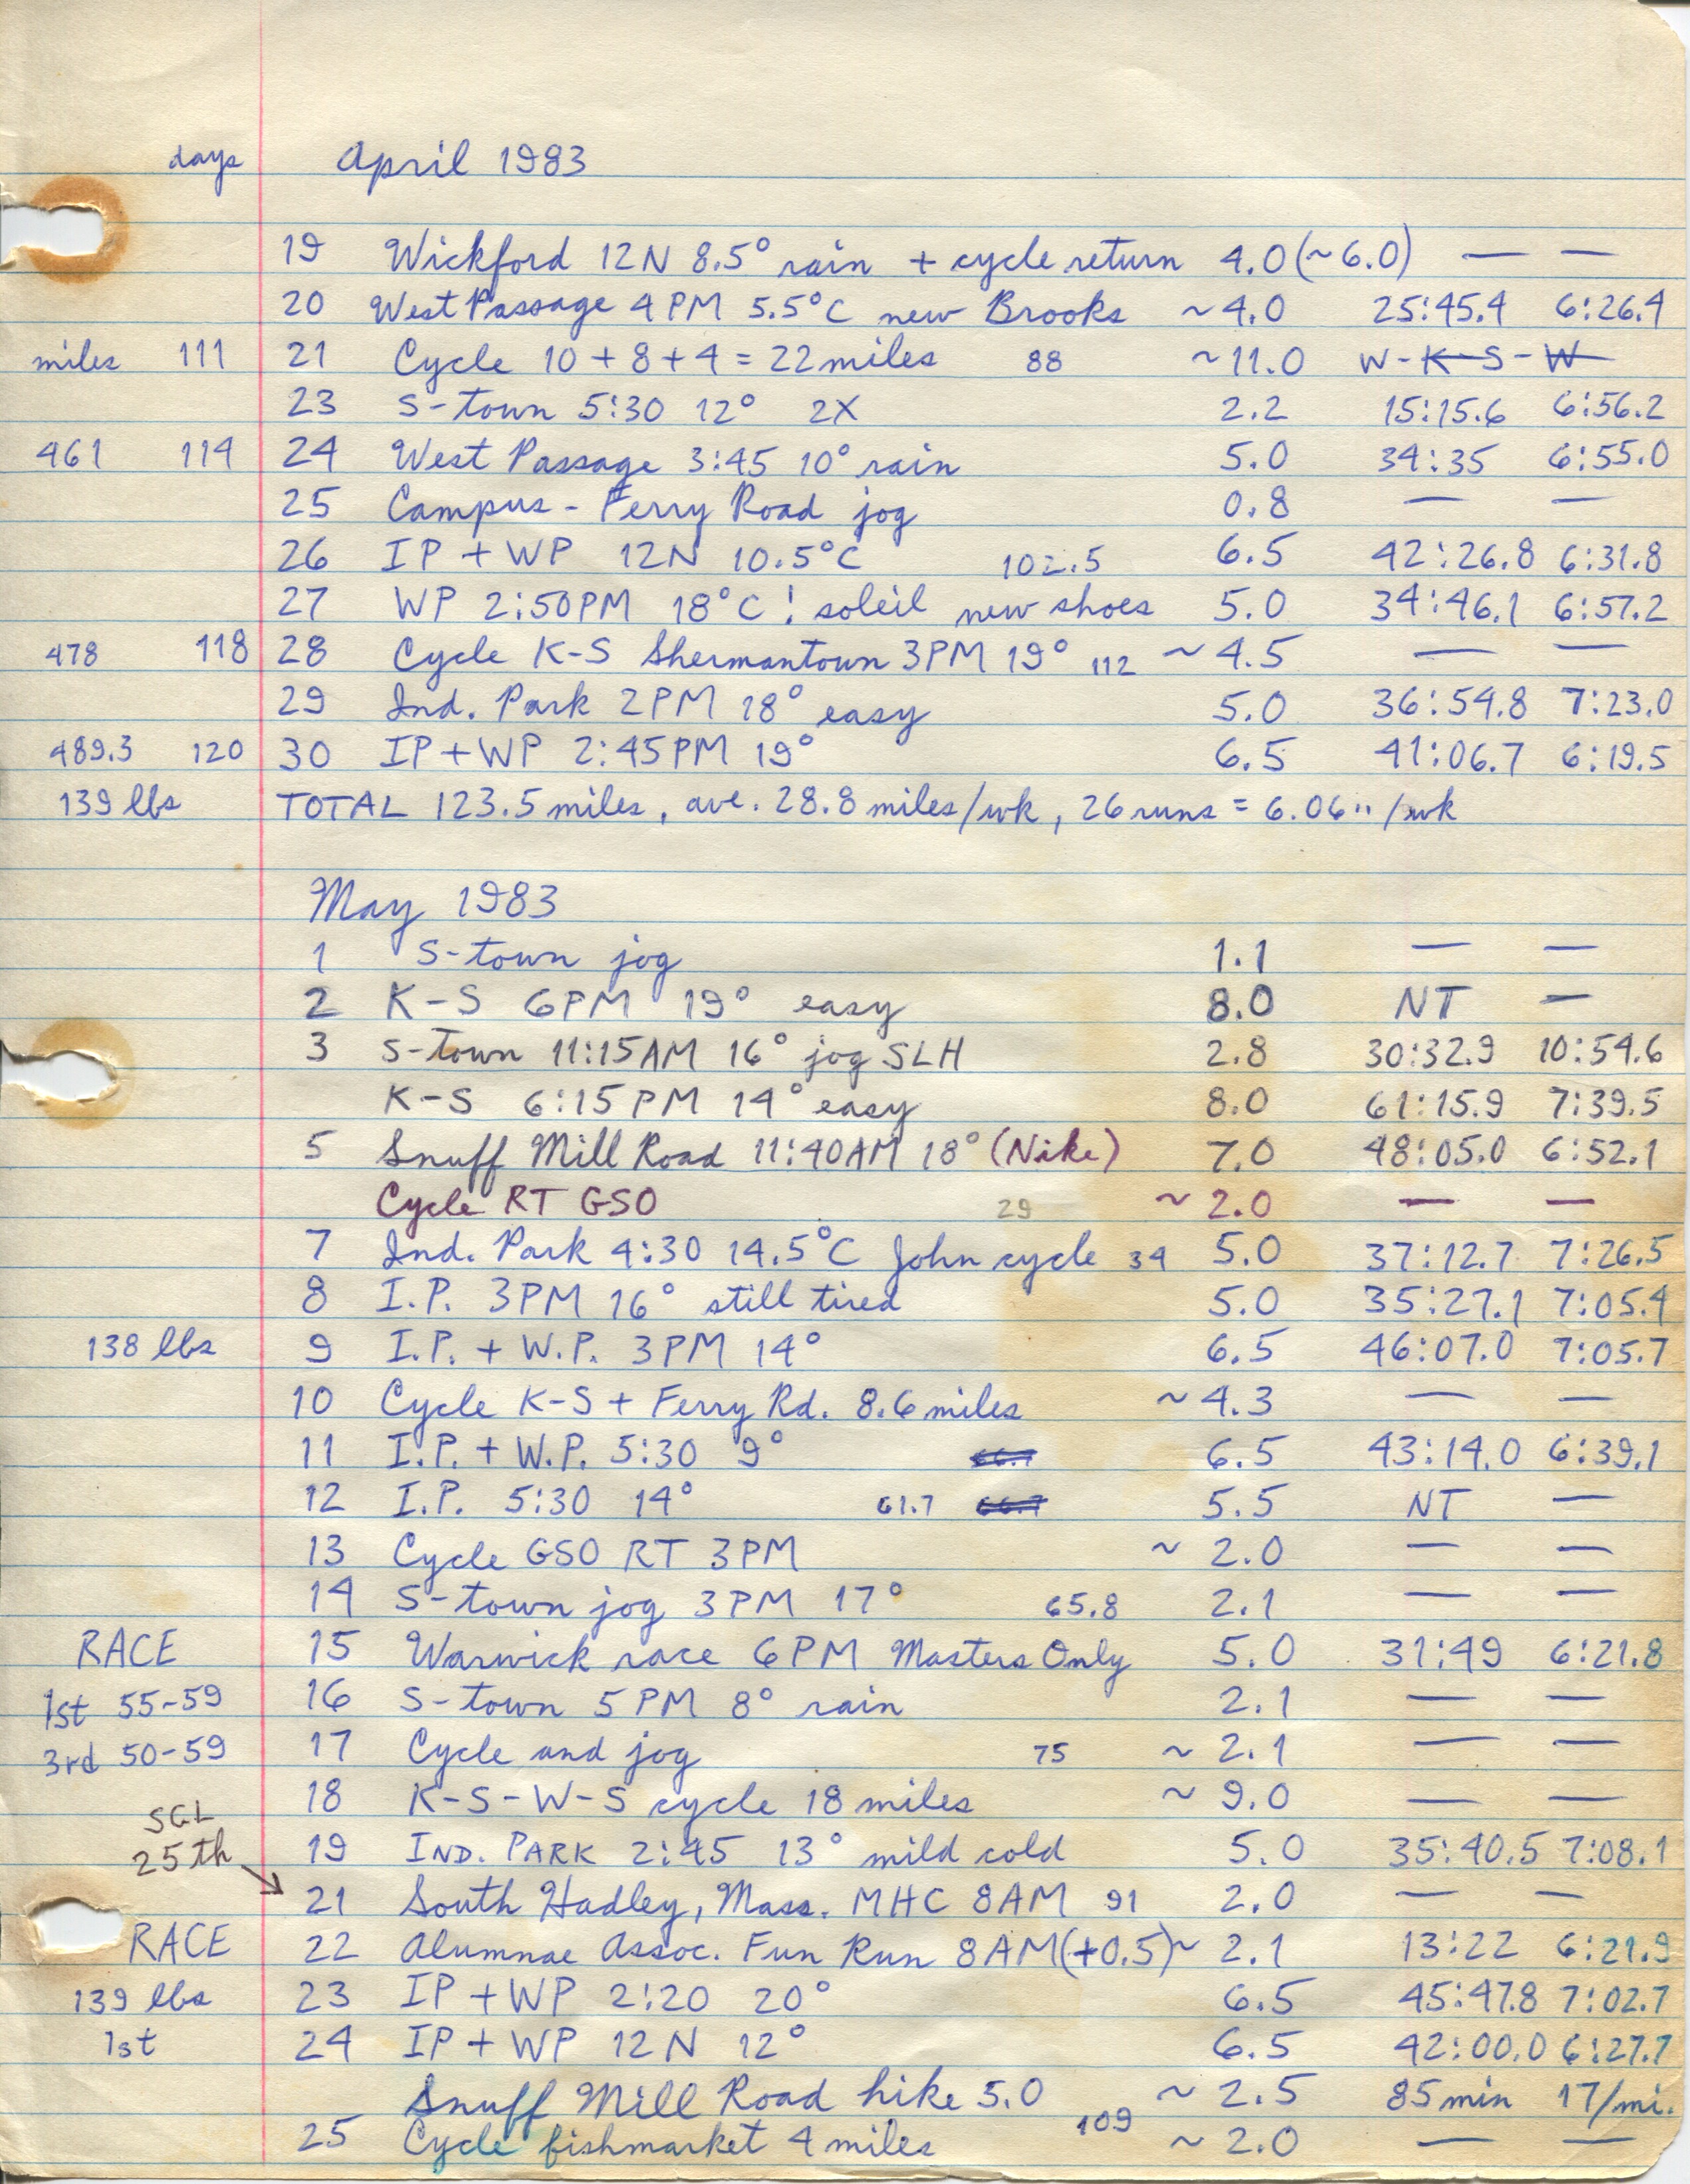 days April 1983
19 Wickford 12N 8.5° rain + cycle return 4.0 (~6.0) — —
20 West Passage 4PM 5.5°C new Brooks ~4.0 25:45.4 6:26.4
miles 111 21 Cycle 10 + 8 + 4 = 22 miles 88 ~11.0 W-K-S-W
23 S-town 5:30 12° 2X 2.2 15:15.6 6:56.2
461 114 24 West Passage 3:45 10° rain 5.0 34:35 6:55.0
25 Campus - Ferry Road jog 0.8 — —
26 IP + WP 12N 10.5°C 102.5 6.5 42:26.8 6:31.8
27 WP 2:50PM 18°C! soleil new shoes 5.0 34:46.1 6:57.2
478 118 28 Cycle K-S Shermantown 3PM 19° 112 ~4.5 — —
29 Ind. Park 2PM 18° easy 5.0 36:54.8 7:23.0
489.3 120 30 IP + WP 2:45PM 19° 6.5 41:06.7 6:19.5
139 lbs TOTAL 123.5 miles, ave. 28.8 miles/wk, 26 runs = 6.06 " /wk
May 1983
1 S-town jog 1.1 — —
2 K-S 6PM 19° easy 8.0 NT —
3 S-town 11:15AM 16° jog SLH 2.8 30:32.9 10:54.6
K-S 6:15PM 14° easy 8.0 61:15.9 7:39.5
5 Snuff Mill Road 11:40AM 18° (Nike) 7.0 48:05.0 6:52.1
Cycle RT GSO 29 ~2.0 — —
7 Ind. Park 4:30 14.5°C John cycle 34 5.0 37:12.7 7:26.5
8 I.P. 3PM 16° still tired 5.0 35:27.1 7:05.4
138 lbs 9 I.P. + W.P. 3PM 14° 6.5 46:07.0 7:05.7
10 Cycle K-S + Ferry Rd. 8.6 miles ~4.3 — —
11 I.P. + W.P. 5:30 9° 6.5 43:14.0 6:39.1
12 I.P. 5:30 14° 61.7 5.5 NT —
13 Cycle GSO RT 3PM ~2.0 — —
14 S-town jog 3PM 17° 65.8 2.1 — —
RACE 15 Warwick race 6PM Masters Only 5.0 31:49 6:21.8
1st 55-59 16 S-town 5PM 8° rain 2.1 — —
3rd 50-59 17 Cycle and jog 75 ~2.1 — —
18 K-S-W-S cycle 18 miles ~9.0 — —
SGL
25th 19 IND. PARK 2:45 13° mild cold 5.0 35:40.5 7:08.1
21 South Hadley, Mass. MHC 8AM 91 2.0 — —
RACE 22 Alumnae Assoc. Fun Run 8AM (+0.5) ~2.1 13:22 6:21.9
139 lbs 23 IP + WP 2:20 20° 6.5 45:47.8 7:02.7
1st 24 IP + WP 12N 12° 6.5 42:00.0 6:27.7
Snuff Mill Road hike 5.0 ~2.5 85min 17/mi.
25 Cycle fishmarket 4 miles 109 ~2.0 — —